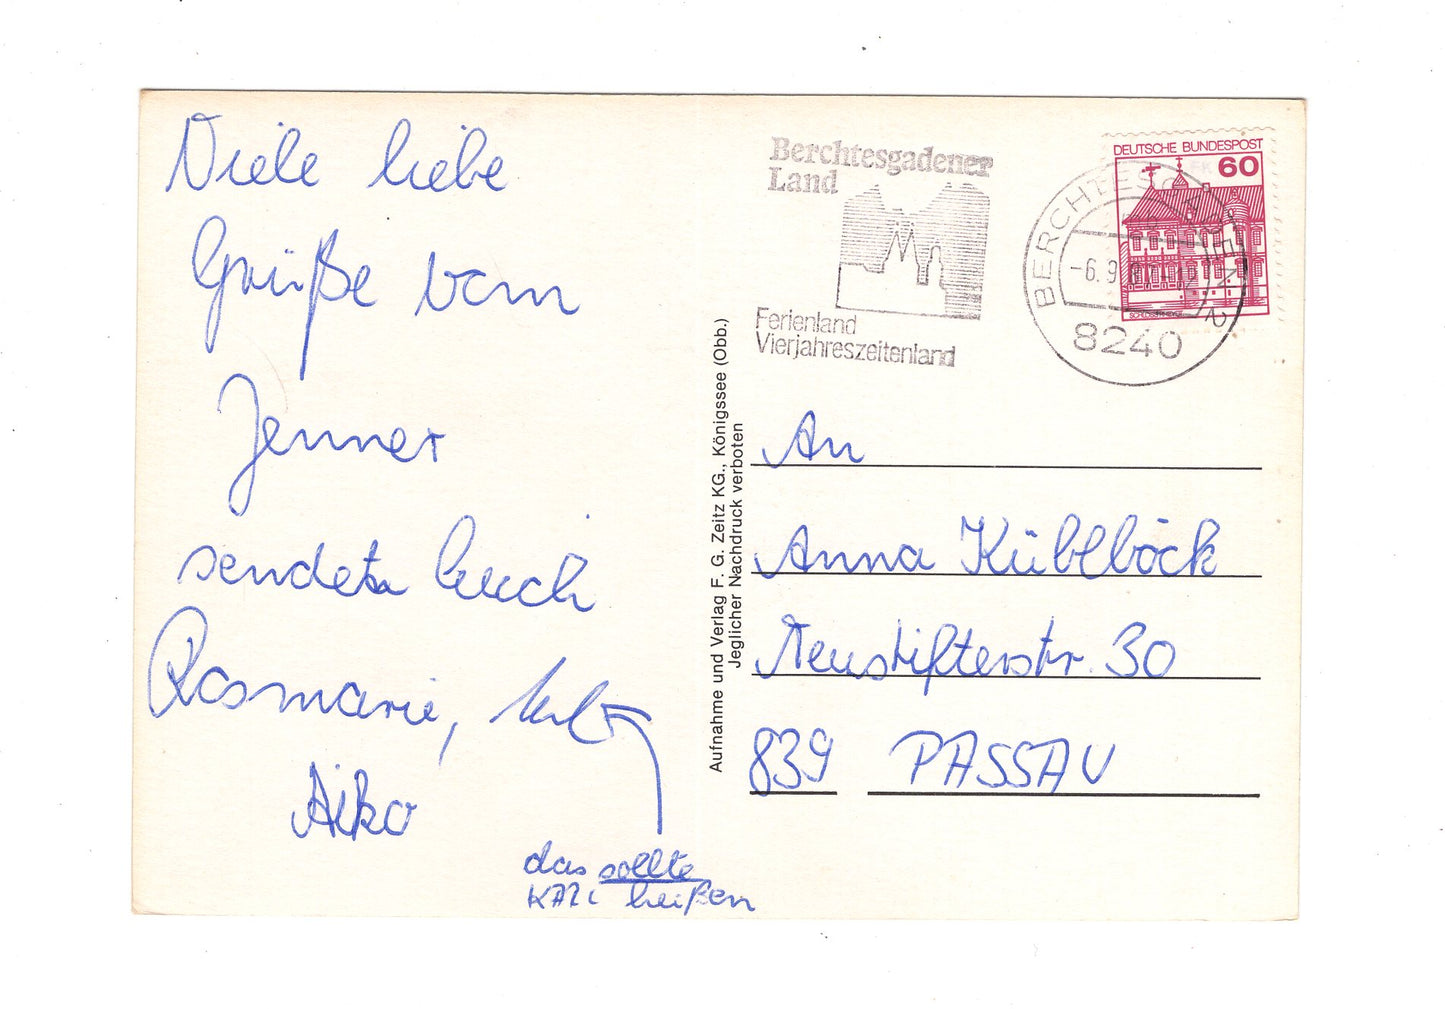 Viele liebe
Grüße vom
Jenner
sendet Euch
Rosmarie, Karl
Aiko
das sollte
KARL heißen
Aufnahme und Verlag F. G. Zeitz KG., Königssee (Obb.)
Jeglicher Nachdruck verboten
Berchtesgadener
Land
Ferienland
Vierjahreszeitenland
BERCHTESGADEN 2
-6.9.
8240
DEUTSCHE BUNDESPOST
60
An
Anna Küblböck
Neustifterstr. 30
839 PASSAU